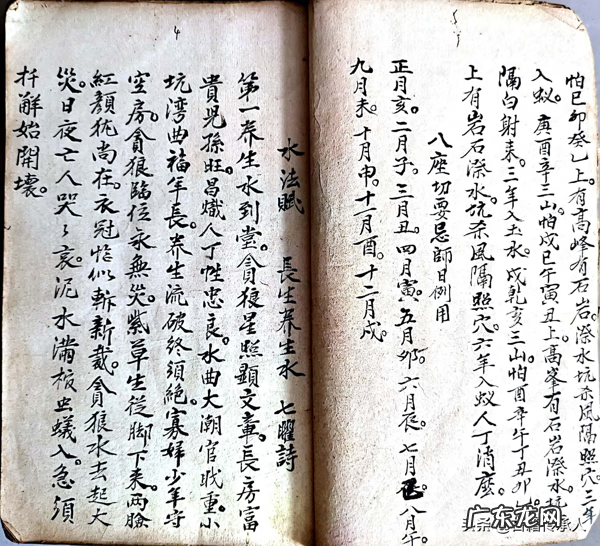 怕巳卯癸乙上有高峰有石岩潦水坑朵風隔照穴三年
入蚁庚酉辛三山怕戌巳午寅丑上高峯有石岩潦水
隔白射来三年入土水戌乾亥三山怕酉辛午丁丑卯
上有岩石潦水坑朵風隔照穴六年入蚁人丁消磨
八座切要忌師日例用
正月亥二月子三月丑四月寅五月卯六月辰七月巳八月午
九月未十月申十一月酉十二月戌
水法賦 長生养生水 七曜詩
第一养生水到堂貪狼星照顯文章長房富
貴児孫旺昌熾人丁性忠良水曲大潮官職重小
坑湾曲福年長养生流破終須絶寡婦少年守
空房貪狼臨位永無災紫草生從脚下来两臉
紅顏犹尚在衣冠恰似斬新裁貪狼水去起大
災日夜亡人哭々哀泥水滿棺虫蟻入急須
扦觧始開壞
4
5
头条
广东龙网